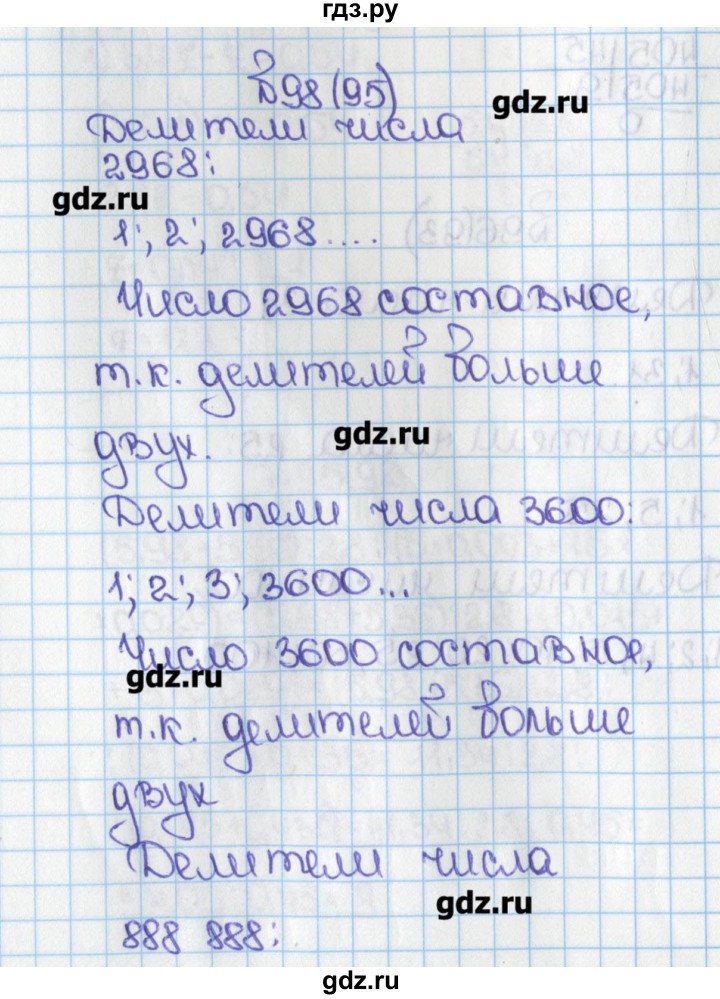 гдз.ру
Б98 (95)
gdz.ru
Делители числа
2968:
gdz.ru
1; 2; 2968....
Число 2968 составное,
т.к. делителей больше
gdz.ru
двух.
Делители числа 3600:
1; 2; 3; 3600...
Число 3600 составное,
gdz.ru
т.к. делителей больше
двух
Делители числа
gdz.ru
888 888:
gdz.ru